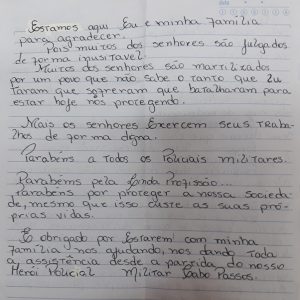 Estamos aqui Eu e minha família
para agradecer.
Pois muitos dos senhores são julgados
de forma inusitável.
Muitos dos senhores são martilizados
por um povo que não sabe o tanto que lu
taram que sofreram que batalharam para
estar hoje nos protegendo.
Mais os senhores Exercem seus traba-
lhos de forma digna.
Parabéns a todos os Policiais militares.
Parabéns pela linda Profissão...
Parabéns por proteger a nossa socieda-
de, mesmo que isso custe as suas pró-
prias vidas.
E obrigado por Estarem com minha
família nos ajudando, nos dando toda
a assistência desde a partida do nosso
Herói Policial Militar Cabo Passos.